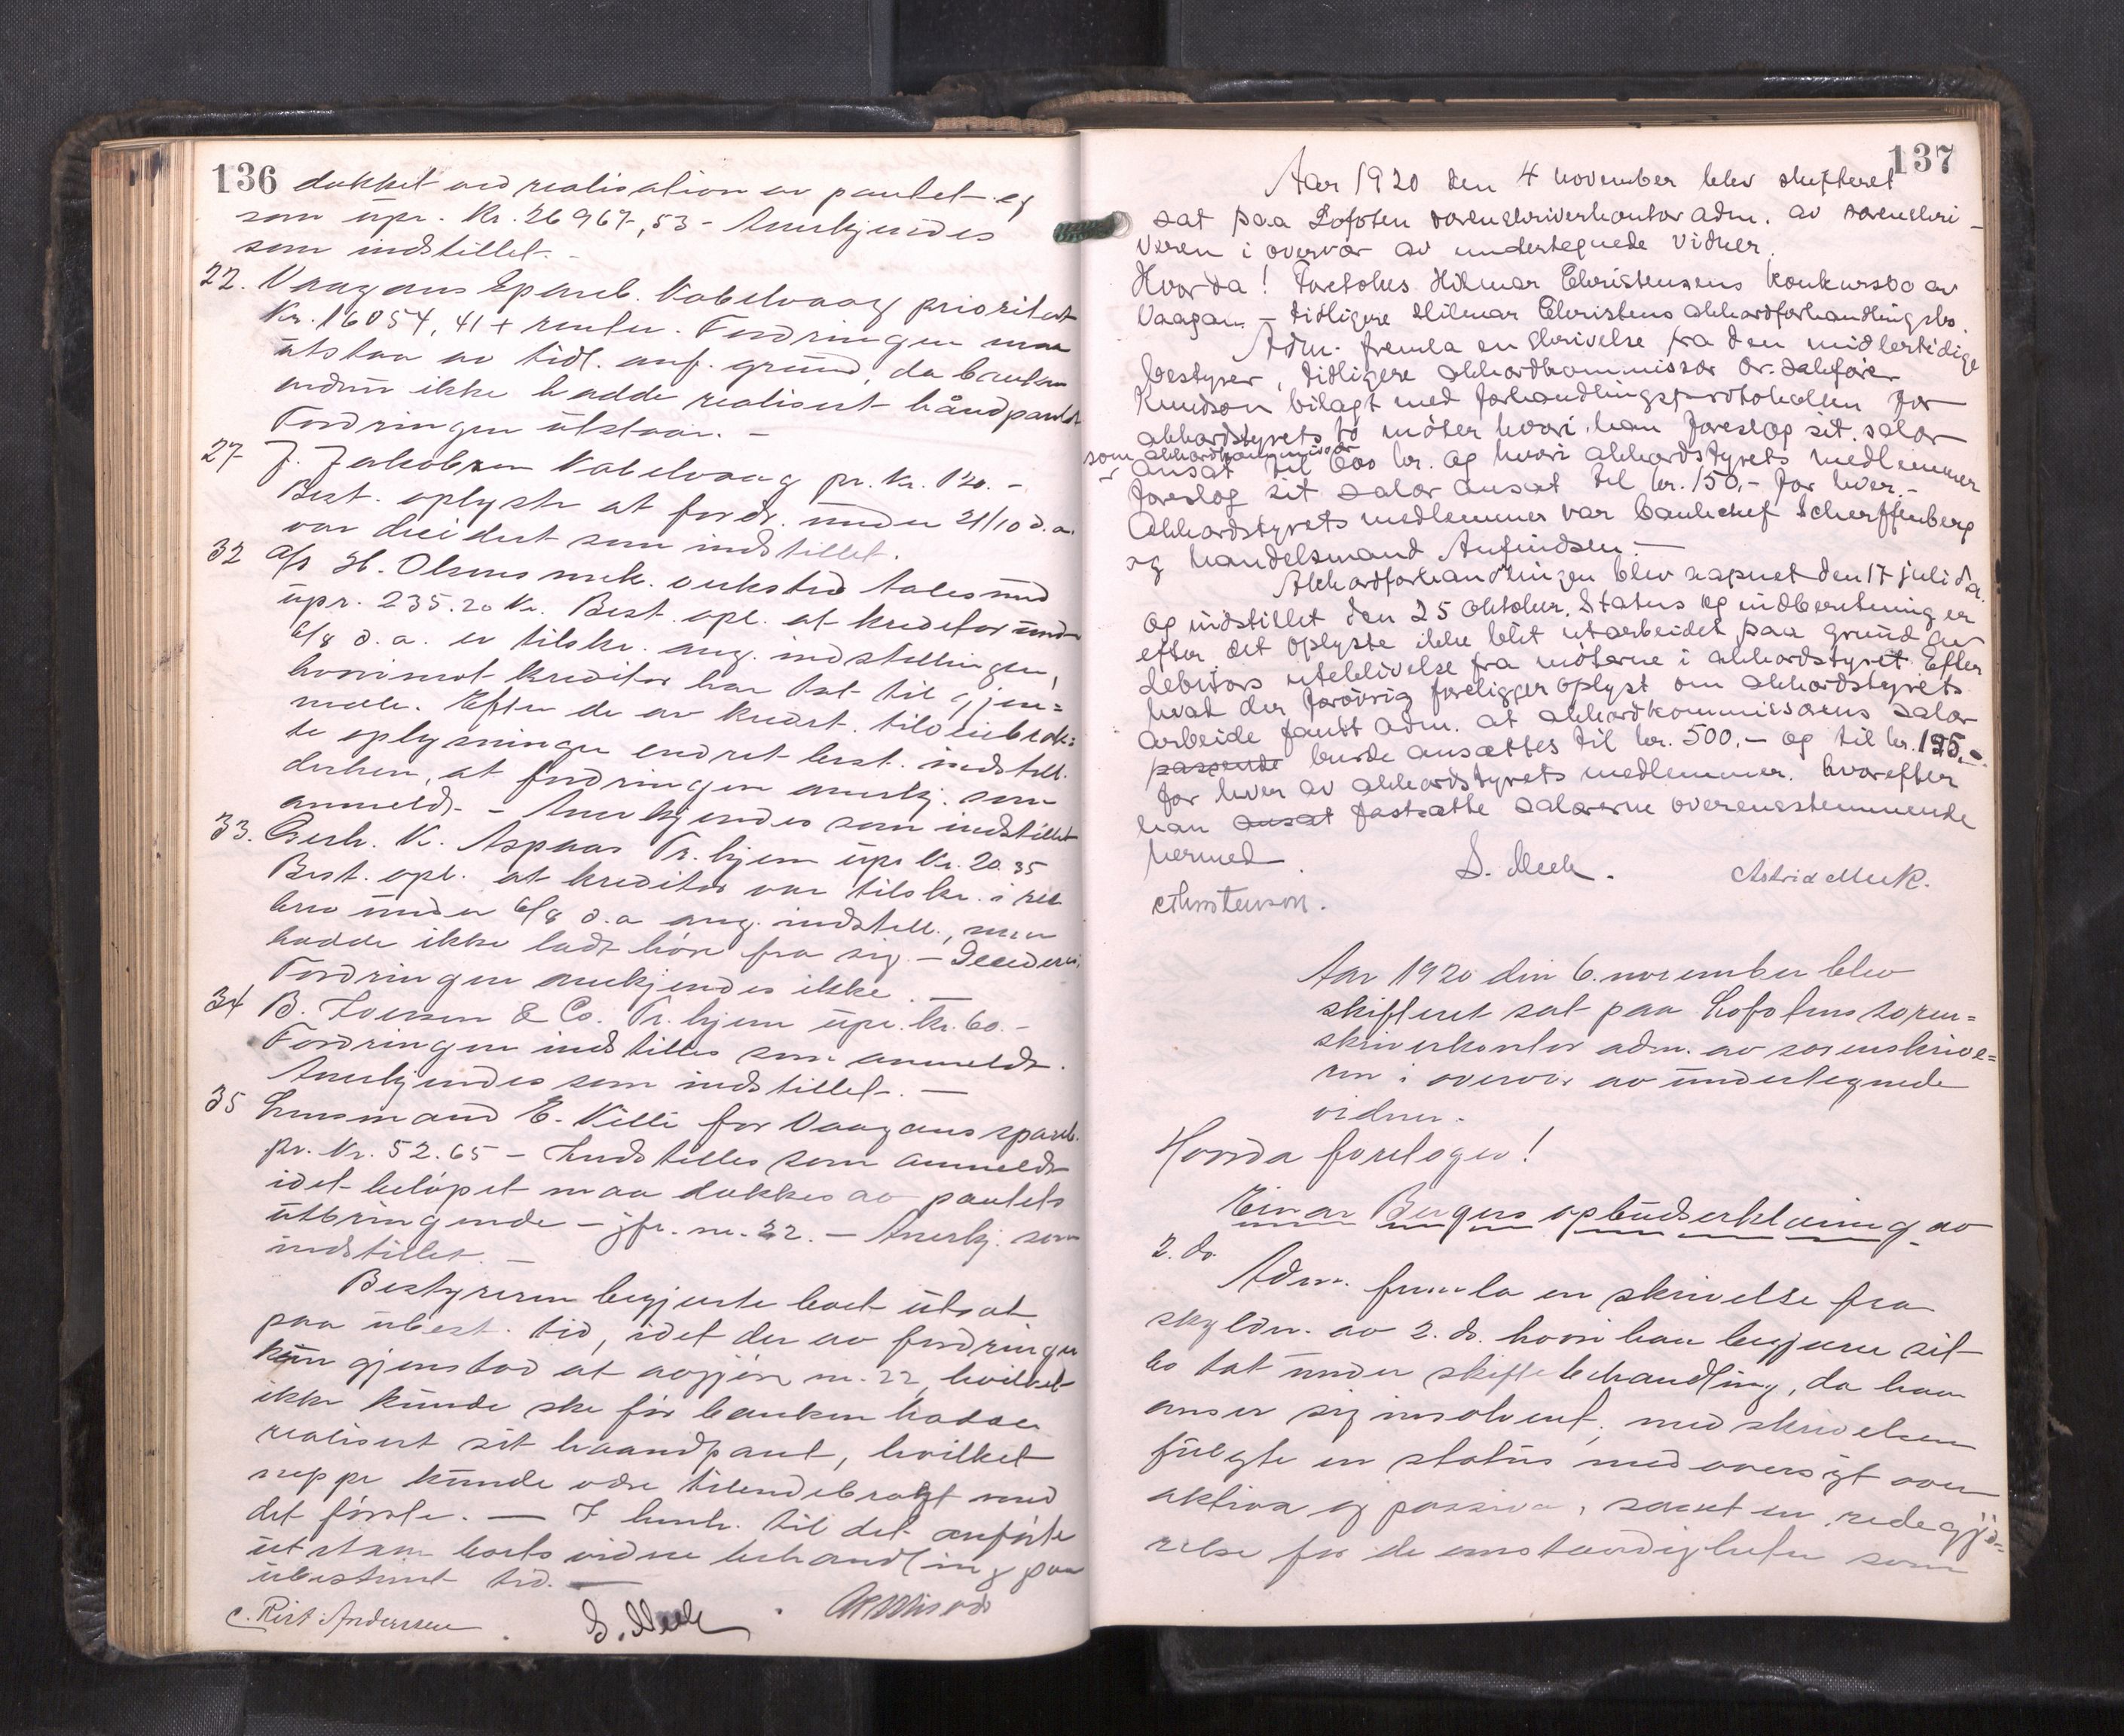 136
dækket ved realisation av pantet og
som upr. Kr. 26967,53 - Anerkjendes
som indstillet. -
22. Vaagans Spareb. Kabelvaag prioritert
Kr. 16054,41 + renter. Fordringen maa
utstaa av tidl. anf. grund, da banken
endnu ikke hadde realisert håndpantet
Fordringen utstaar. -
27 J. Jakobsen Kabelvaag pr. Kr. 120. -
Best. oplyste at fordr. under 21/10 d.a.
var decidert som indstillet.
32 A/S H. Olsens mek. verksted Aalesund
upr. 235.20 Kr. Best. opl. at kreditor under
6/8 d.a. er tilskr. ang. indstillingen,
hvorimot kreditor har tat til gjen=
mæle. Efter de av kredit. tilveiebrak=
te oplysninger endret best. indstill.
derhen, at fordringen anerkj. som
anmeldt. - Anerkjendes som indstillet
33. Gerh. K. Aspaas Tr.hjem upr. Kr. 20.35
Best. opl. at kreditor var tilskr. i rek.
brev under 6/8 d.a. ang. indstill., men
hadde ikke ladt høre fra sig. -
Fordringen anerkjendes ikke. -
34 B. Iversen & Co. Tr.hjem upr. kr. 60. -
Fordringen indstilles som anmeldt.
Anerkjendes som indstillet. -
35 Lensmand E. Killi for Vaagans spareb.
pr. Kr. 52.65 - Indstilles som anmeldt
idet beløpet maa dækkes av pantets
utbringende - jfr. nr. 22. - Anerkj. som
indstillet. -
Bestyreren begjærte boet utsat
paa ubest. tid, idet der av fordringer
kun gjenstod at avgjøre nr. 22, hvilket
ikke kunde ske før banken hadde
realisert sit haandpant, hvilket
neppe kunde være tilendebragt med
det første. - I henh. til det anførte
utstaar boets videre behandling paa
ubestemt tid. -
C. Rist Anderssen S. Meek
137
Aar 1920 den 4 november blev skifteret
sat paa Lofoten sorenskriverkontor adm. av sorenskri-
veren i overvær av undertegnede vidner.
Hvorda! Foretokes Hilmar Christensens konkursbo av
Vaagan - tidligere Hilmar Christens akkordforhandlingsbo.
Adm. fremla en skrivelse fra den midlertidige
bestyrer, tidligere akkordkommissær Or.sakfører
Knudson bilagt med forhandlingsprotokollen for
akkordstyrets to møter hvori han foreslog sit salær
som akkordkommissær
ansat til 600 kr. og hvori akkordstyrets medlemmer
foreslog sit salær ansat til kr. 150,- for hver. -
Akkordstyrets medlemmer var bankchef Scheffenberg
og handelsmand Anfindsen. -
Akkordforhandlingen blev aapnet den 17 juli d.a.
og indstillet den 25 oktober. Status og indberetning er
efter det oplyste ikke blit utarbeidet paa grund av
debitors uteblivelse fra møterne i akkordstyret. Efter
hvad der forøvrig foreligger oplyst om akkordstyrets
arbeide fandt adm. at akkordkommissærens salær
passende burde ansættes til kr. 500,- og til kr. 125,-
for hver av akkordstyrets medlemmer. hvorefter
han ansat fastsatte salærerne overensstemmende
hermed.
S. Meek. Astrid Meek.
Christenson.
Aar 1920 den 6. november blev
skifteret sat paa Lofotens soren=
skriverkontor adm. av sorenskrive=
ren i overvær av undertegnede
vidner.
Hvorda foretoges!
Einar Bergers opbudserklæring av
2. ds.
Adm. fremla en skrivelse fra
skyldn. av 2. ds. hvori han begjærer sit
bo tat under skiftebehandling, da han
anser sig insolvent, med skrivelsen
fulgte en status med oversigt over
aktiva og passiva, samt en redegjø=
relse for de omstændigheter som